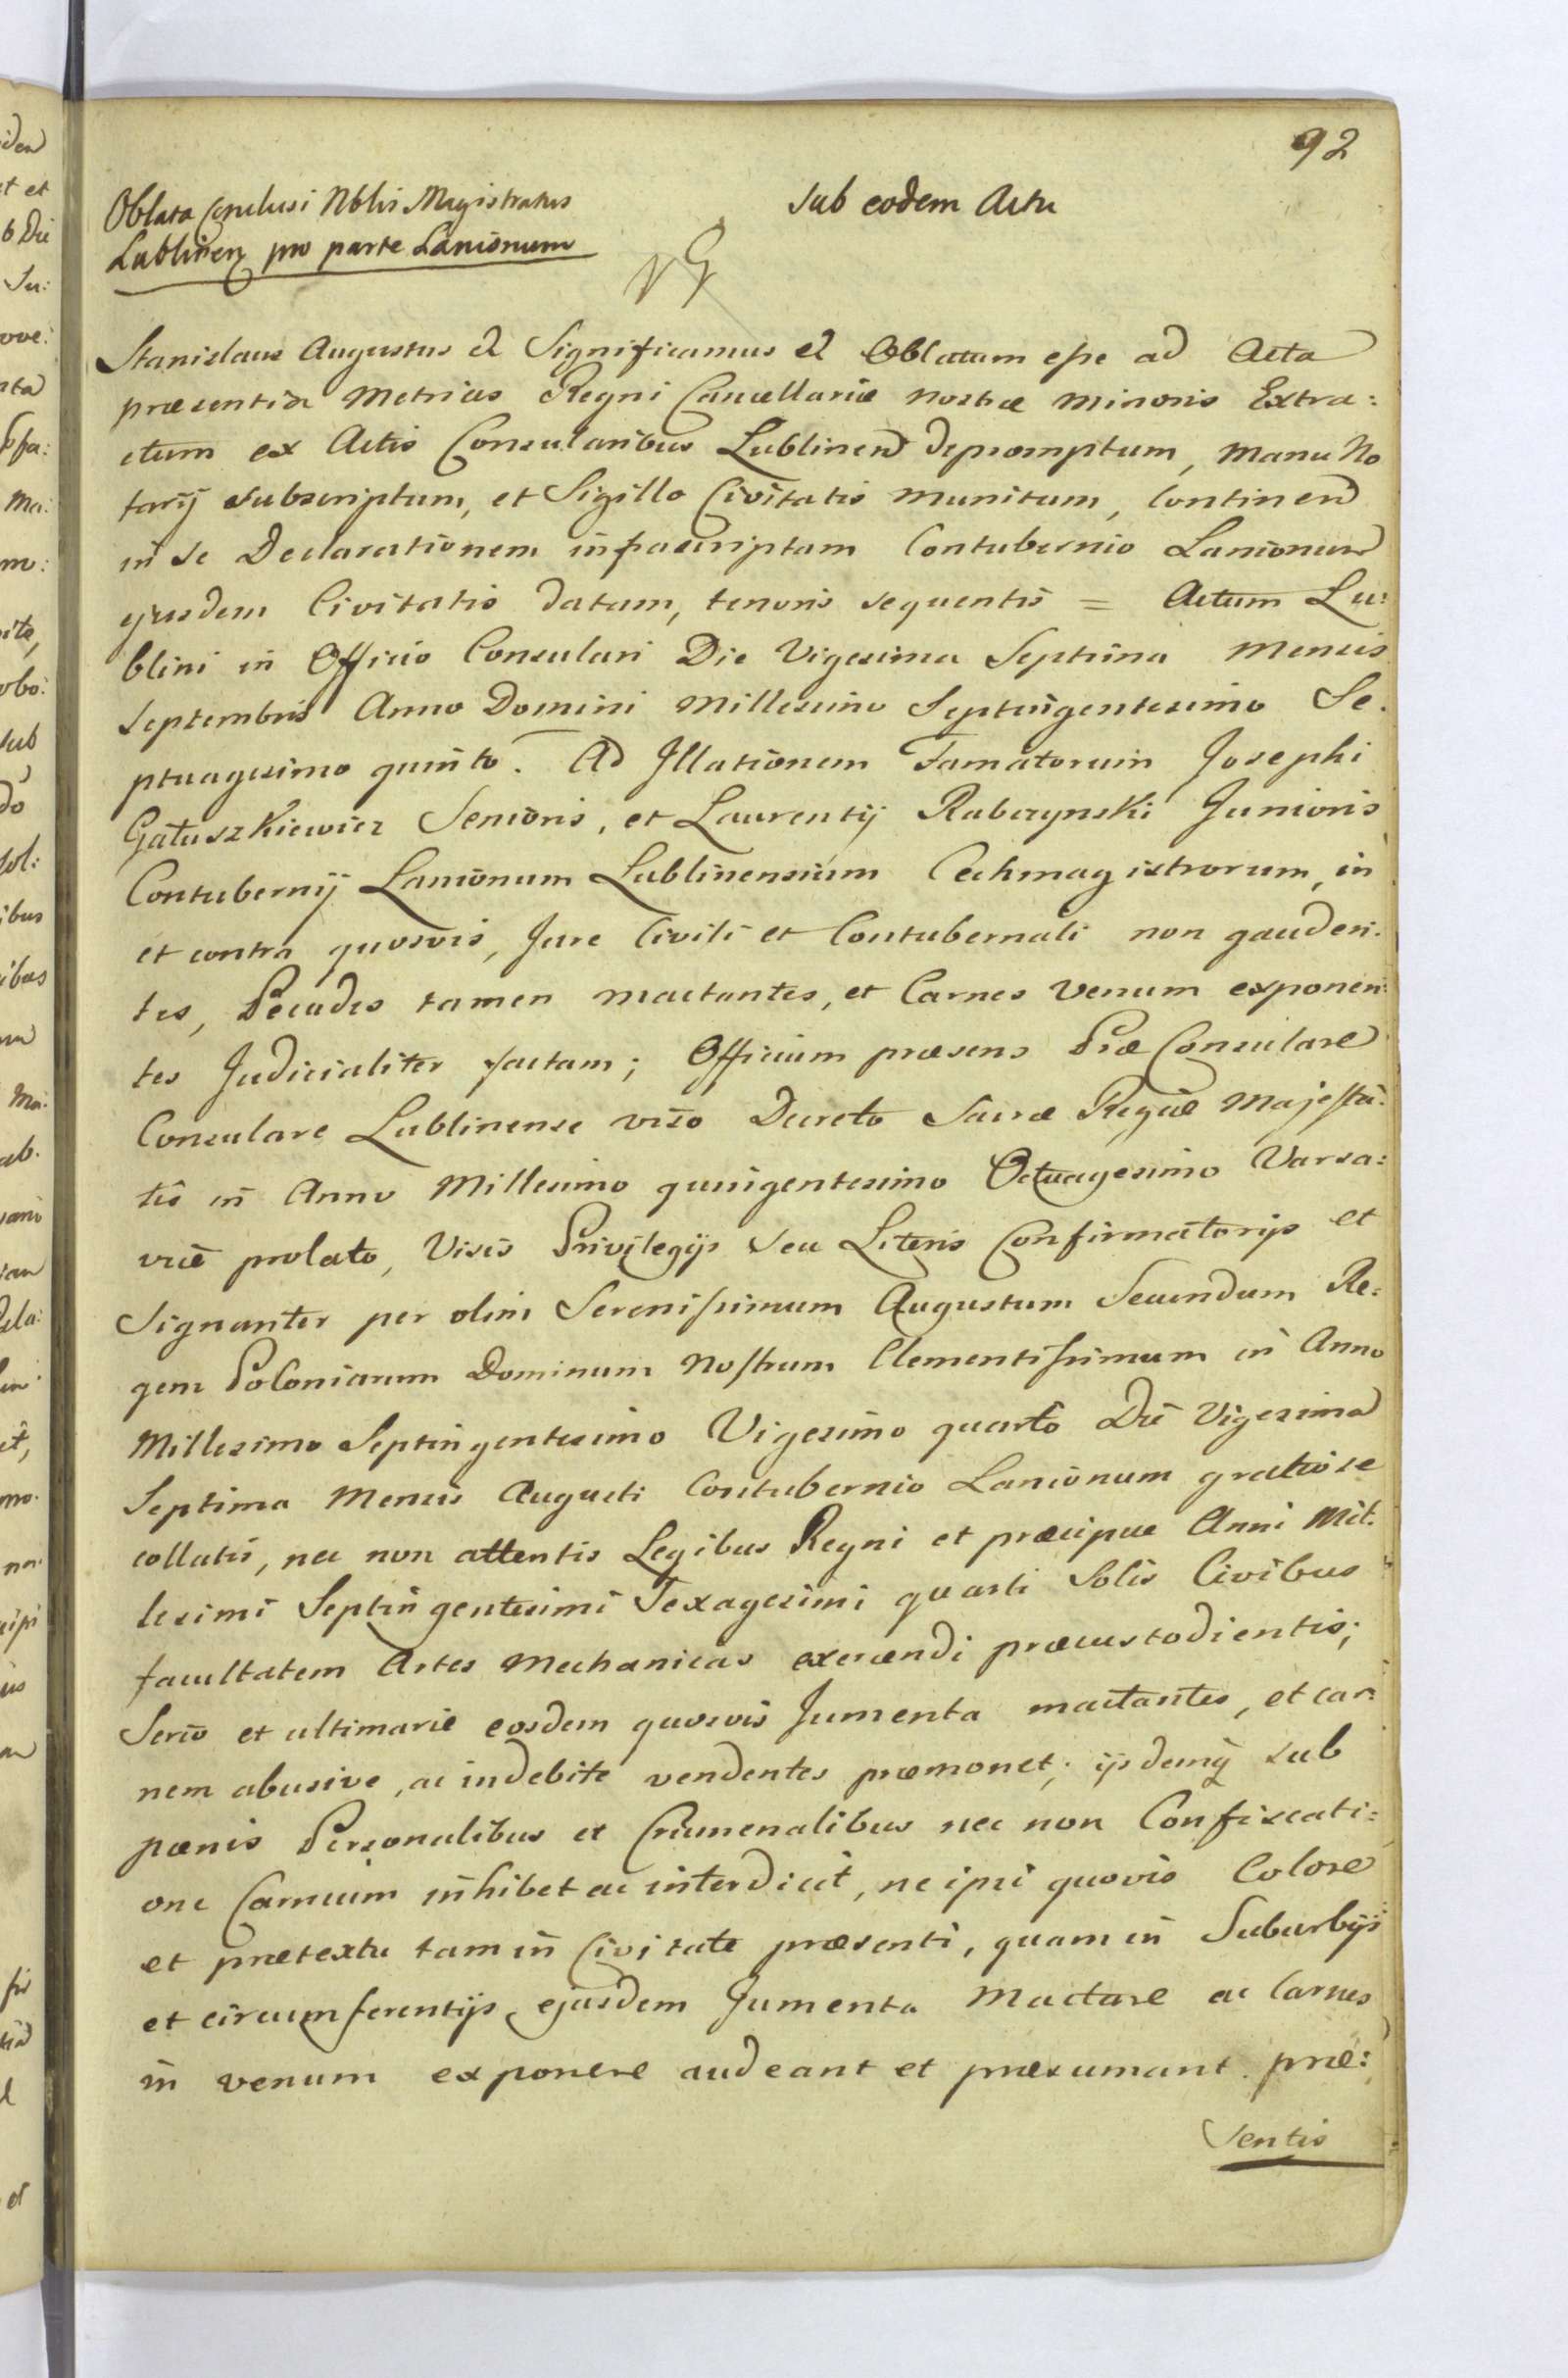 92
Oblata Conclusi Nblis Magistratus
Lublinen pro parte Lanionum
Sub eodem Actu
Stanislaus Augustus et Significamus et Oblatum esse ad Acta
præsentia Metrices Regni Cancellariæ nostræ minoris Extra:
ctum ex Actis Consularibus Lublinen depromptum, manu No
tarij subscriptum, et Sigillo Civitatis munitum, continen
in se Declarationem infrascriptam Contubernio Lanionum
ejusdem Civitatis datam, tenoris sequentis = Actum Lu:
blini in Officio Consulari Die Vigesima Septima Mensis
Septembris Anno Domini Millesimo Septingentesimo Se.
ptuagesimo quinto. Ad Illationem Famatorum Josephi
Gałuszkiewicz Senioris, et Laurentij Rabczynski Junioris
Contubernij Lanionum Lublinensium Cechmagistrorum, in
et contra quosvis, Jure Civili et Contubernali non gauden:
tes, Pecudes tamen mactantes, et Carnes venum exponen:
tes Judicialiter factam; Officium præsens Præ Consulare
Consulare Lublinense viso Decreto Sacræ Regiæ Majesta:
tis in Anno Millesimo quingentesimo Octuagesimo Varsa:
viæ prolato, Visis Privilegijs seu Literis Confirmatorijs et
Signanter per olim Serenissimum Augustum Secundum Re:
gem Poloniarum Dominum Nostrum Clementissimum in Anno
Millesimo Septingentesimo Vigesimo quarto Die Vigesima
Septima Mensis Augusti Contubernio Lanionum gratiose
collatis, nec non attentis Legibus Regni et præcipue Anni Mil.
lesimi Septingentesimi Sexagesimi quarti Solis Civibus
facultatem Artes Mechanicas exercendi præcustodientis;
Serio et ultimarie eosdem quosvis Jumenta mactantes, et car:
nem abusive, ac indebite vendentes præmonet; ijsdemq sub
pœnis Personalibus et Crumenalibus nec non Confiscati:
one Carnium inhibet ac interdicit, ne ipsi quovis Colore
et prætextu tam in Civitate præsenti, quam in Suburbijs
et circumferentijs ejusdem Jumenta Mactare ac Carnes
in venum exponere audeant et præsumant. præ:
sentis